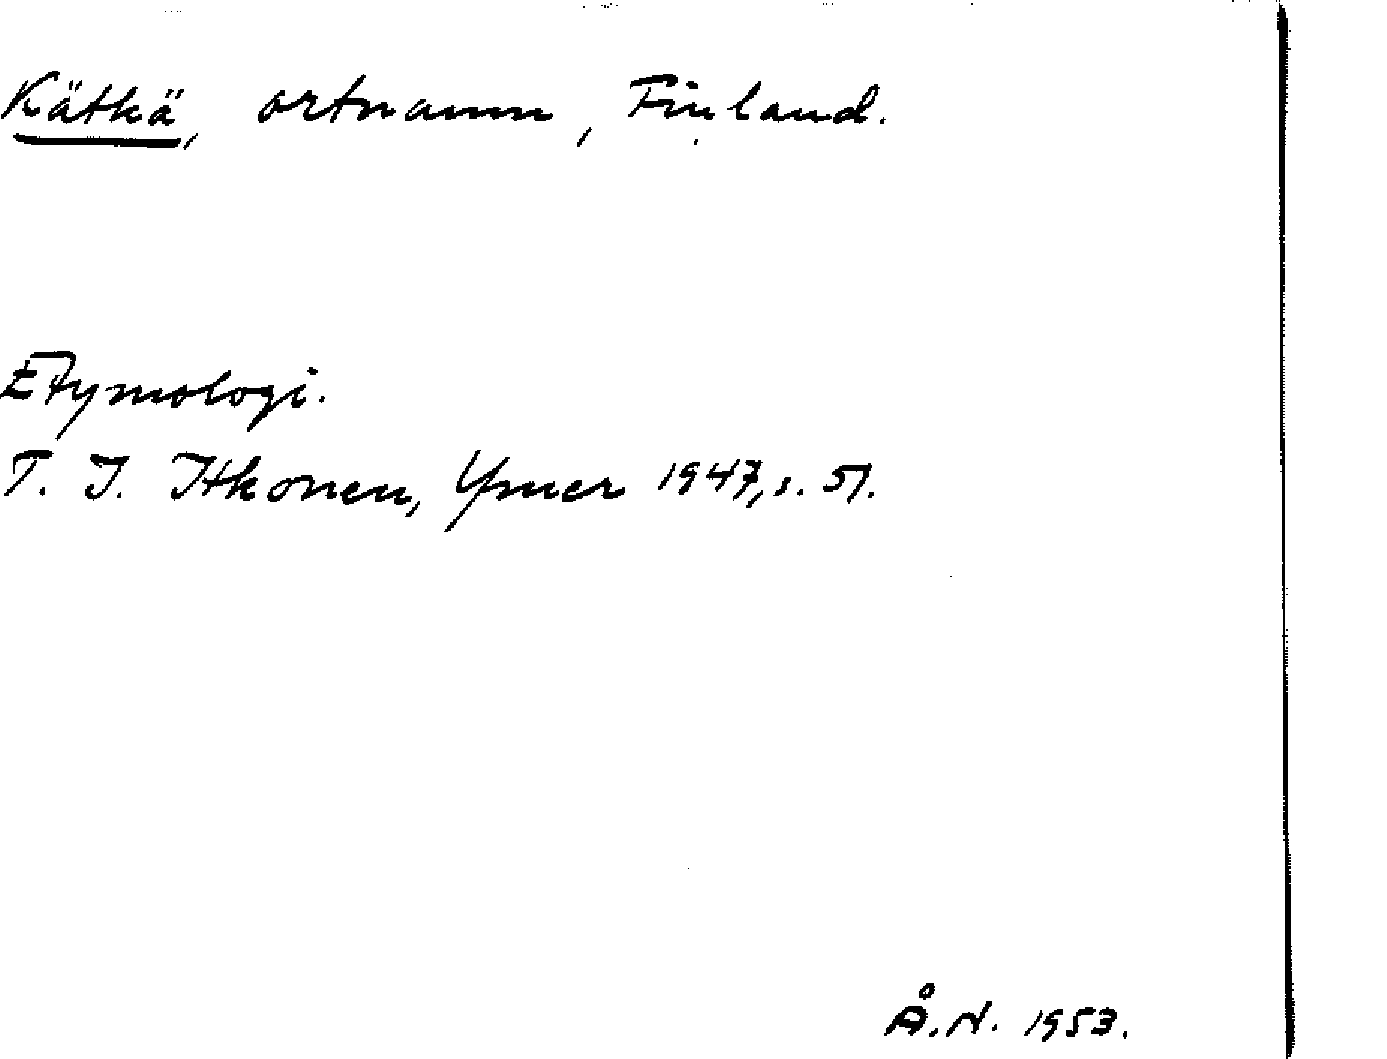 Kätkä, ortnamn, Finland.
Etymologi.
T. I. Itkonen, Ymer 1947, s. 51.
Å.N. 1953.